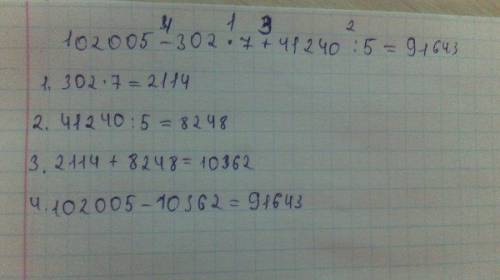 4 1 3 2
102005 - 302 · 7 + 41240 : 5 = 91643
1. 302 · 7 = 2114
2. 41240 : 5 = 8248
3. 2114 + 8248 = 10362
4. 102005 - 10362 = 91643